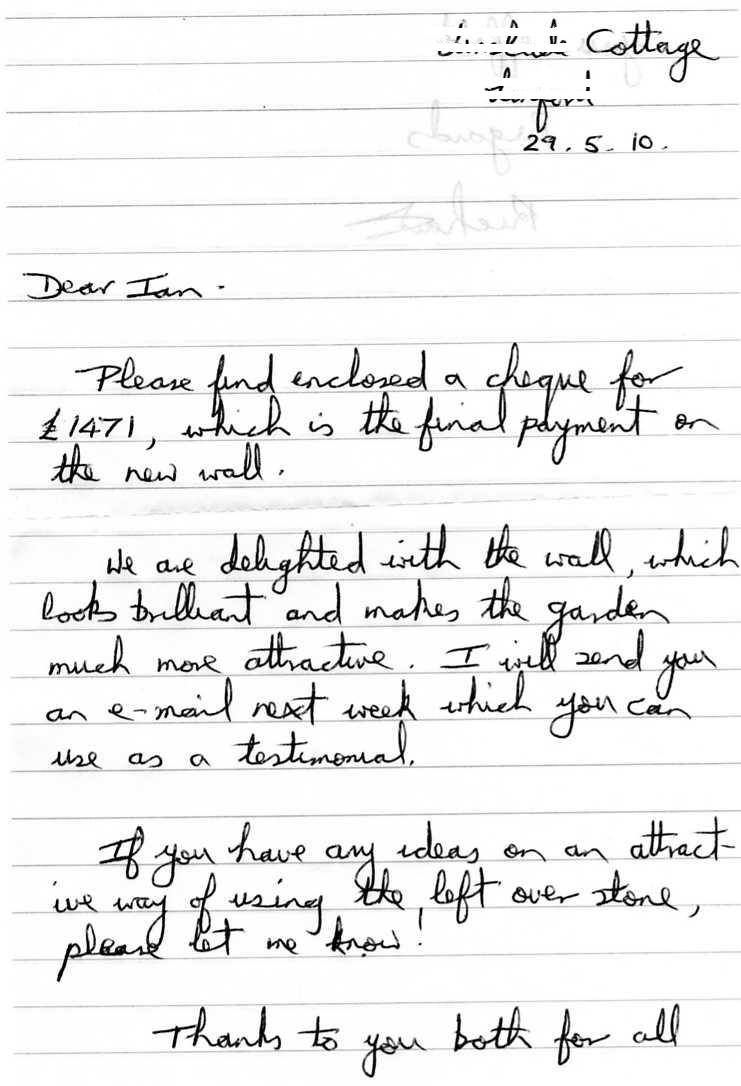 Cottage
29.5.10.
Dear Ian.
Please find enclosed a cheque for
£1471, which is the final payment on
the new wall.
We are delighted with the wall, which
looks brilliant and makes the garden
much more attractive. I will send you
an e-mail next week which you can
use as a testimonial.
If you have any ideas on an attract-
ive way of using the left over stone,
please let me know!
Thanks to you both for all